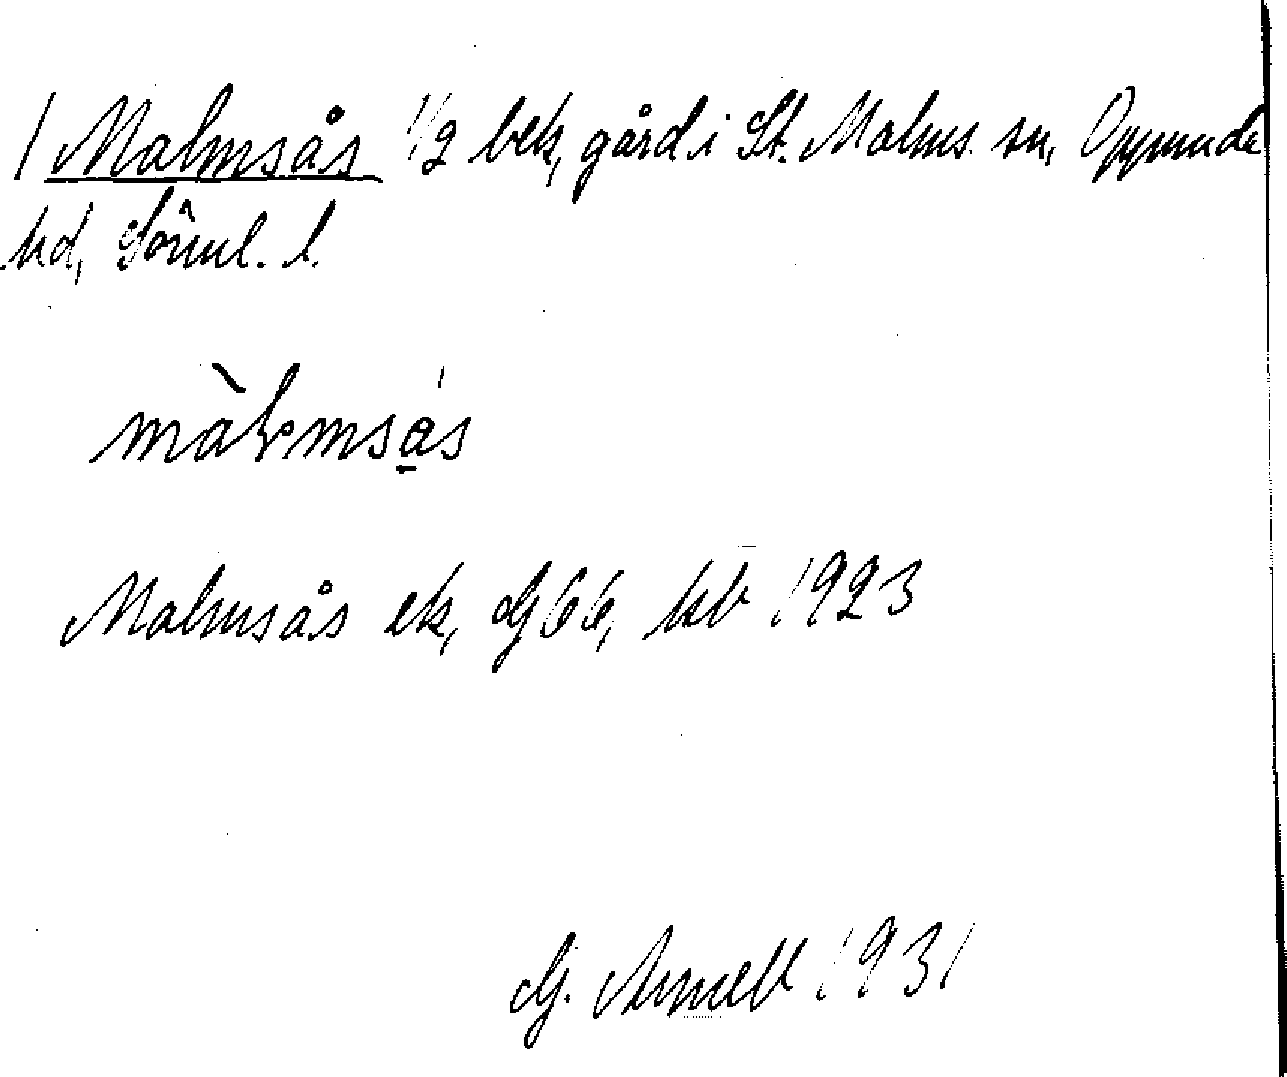 / Malmsås 1/2 bek, gård i St. Malms sn, Oppunda
hd, Söml. l.
màlmsås
Malmsås ek, G66, kb 1923
G. Arnell 1931